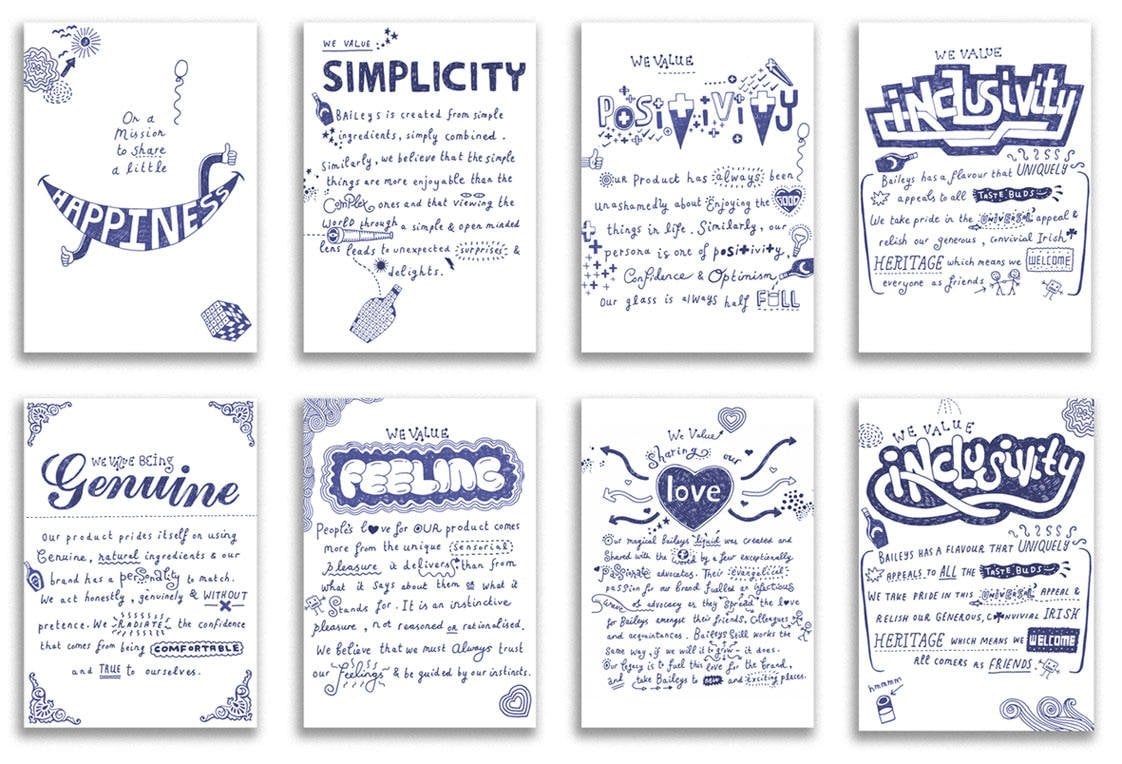 On a
Mission
to share
a little
HAPPINESS
WE VALUE
SIMPLICITY
BAILEYS is created from simple
ingredients, simply combined.
Similarly, we believe that the simple
things are more enjoyable than the
Complex ones and that viewing the
World through a simple & open minded
lens leads to unexpected surprises &
delights.
WE VALUE
POSITIVITY
Our Product has always been
unashamedly about Enjoying the GOOD
things in life. Similarly, our
persona is one of positivity,
Confidence & Optimism
Our glass is always half FULL
WE VALUE
iNCLUSiViTY
Baileys has a flavour that UNIQUELY
appeals to all TASTE BUDS
We take pride in the UNIVERSAL appeal &
relish our generous, convivial Irish
HERITAGE which means we WELCOME
everyone as friends
WE VALUE BEING
Genuine
Our product prides itself on using
Genuine, natural ingredients & our
brand has a personality to match.
We act honestly, genuinely & WITHOUT
pretence. We RADIATE the confidence
that comes from being COMFORTABLE
and TRUE to ourselves.
WE VALUE
FEELING
People's love for OUR product comes
more from the unique Sensorial
pleasure it delivers than from
what it says about them or what it
Stands for. It is an instinctive
pleasure, not reasoned or rationalised.
We believe that we must Always trust
our Feelings & be guided by our instincts.
We Value
Sharing our
love
Our magical Baileys liquid was created and
Shared with the world by a few exceptionally
Passionate advocates. Their evangelical
passion for our brand fuelled an infectious
of advocacy as they spread the love
for Baileys amongst their friends, Colleagues
and acquaintances. Baileys still works the
Same way, if we will it to grow - it does.
Our legacy is to fuel this love for the brand,
and take Baileys to new and exciting places.
WE VALUE
iNCLUSiViTY
BAILEYS HAS A FLAVOUR THAT UNIQUELY
APPEALS TO ALL THE TASTE BUDS
WE TAKE PRIDE IN THIS UNIVERSAL APPEAL &
RELISH OUR GENEROUS, CONVIVIAL IRISH
HERITAGE WHICH MEANS WE WELCOME
all comers as FRIENDS.
hmmmm